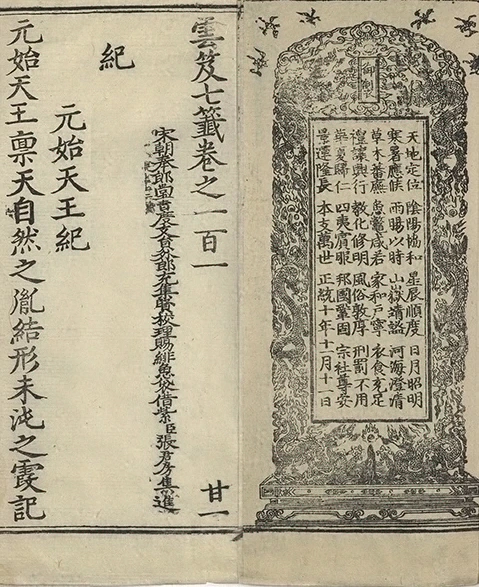 御製
天地定位 陰陽協和 星辰順度 日月昭明
寒暑應候 雨暘以時 山嶽靖謐 河海澄清
草木蕃廡 魚鱉咸若 家和戶寧 衣食充足
禮讓興行 教化修明 風俗敦厚 刑罰不用
華夏歸仁 四夷賓服 邦國鞏固 宗社尊安
景運隆長 本支萬世 正統十年十一月十一日
雲笈七籤卷之一百一 廿一
宋朝奉郎尚書度支員外郎充集賢校理賜緋魚袋借紫臣張君房集進
紀
元始天王紀
元始天王禀天自然之胤結形未沌之霞記